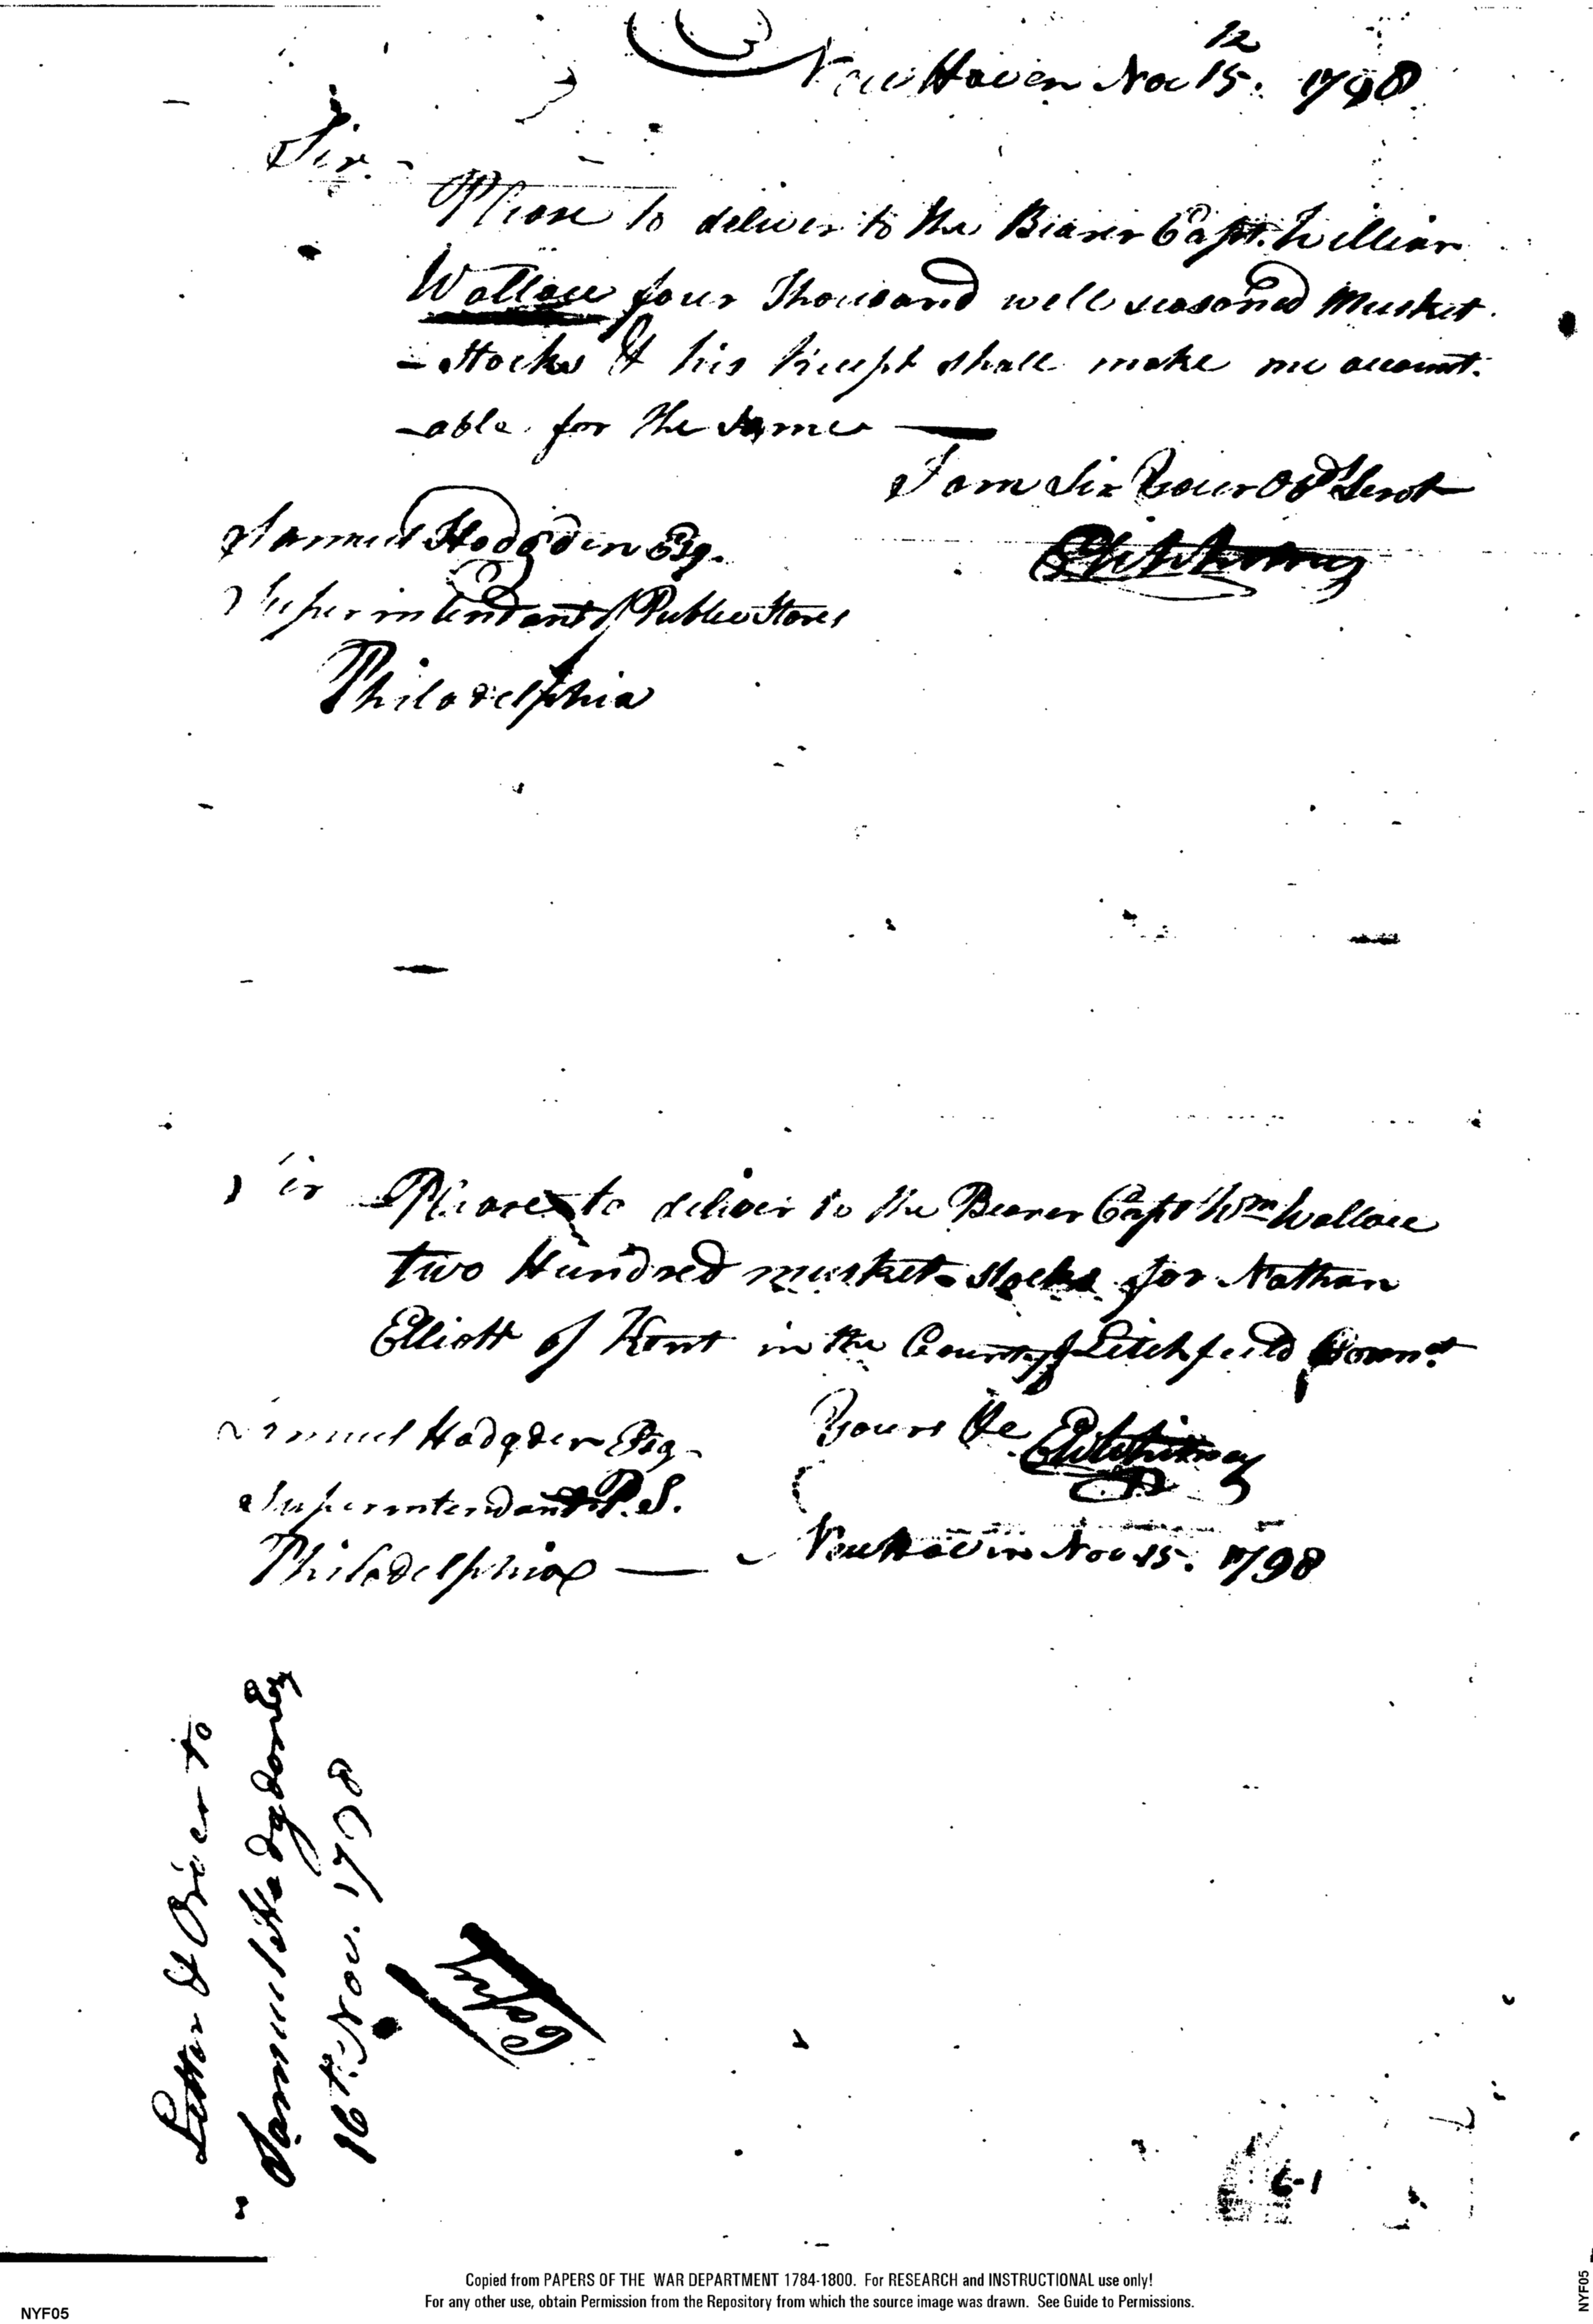 12
New Haven Nov 15. 1798
Sir.
Please to deliver to the Bearer Capt. William
Wallace four Thousand well seasoned Musket
-Stocks & his Receipt shall make me account-
-able for the Same
I am Sir Your Obd Servt
Eli Whitney
Samuel Hodgden Esq.
Superintendant of Public Stores
Philadelphia
Sir Please to deliver to the Bearer Capt Wm Wallace
two Hundred musket stocks for Nathan
Elliott of Kent in the County of Litchfield Connt
Yours &c Eli Whitney
Samuel Hodgden Esq
Superintendant P. S.
Philadelphia — New Haven Nov 15. 1798
Letter & Order to
Samuel Hodgdon Esq
16th Nov. 1798
Copy
6-1
Copied from PAPERS OF THE WAR DEPARTMENT 1784-1800. For RESEARCH and INSTRUCTIONAL use only!
For any other use, obtain Permission from the Repository from which the source image was drawn. See Guide to Permissions.
NYF05
NYF05